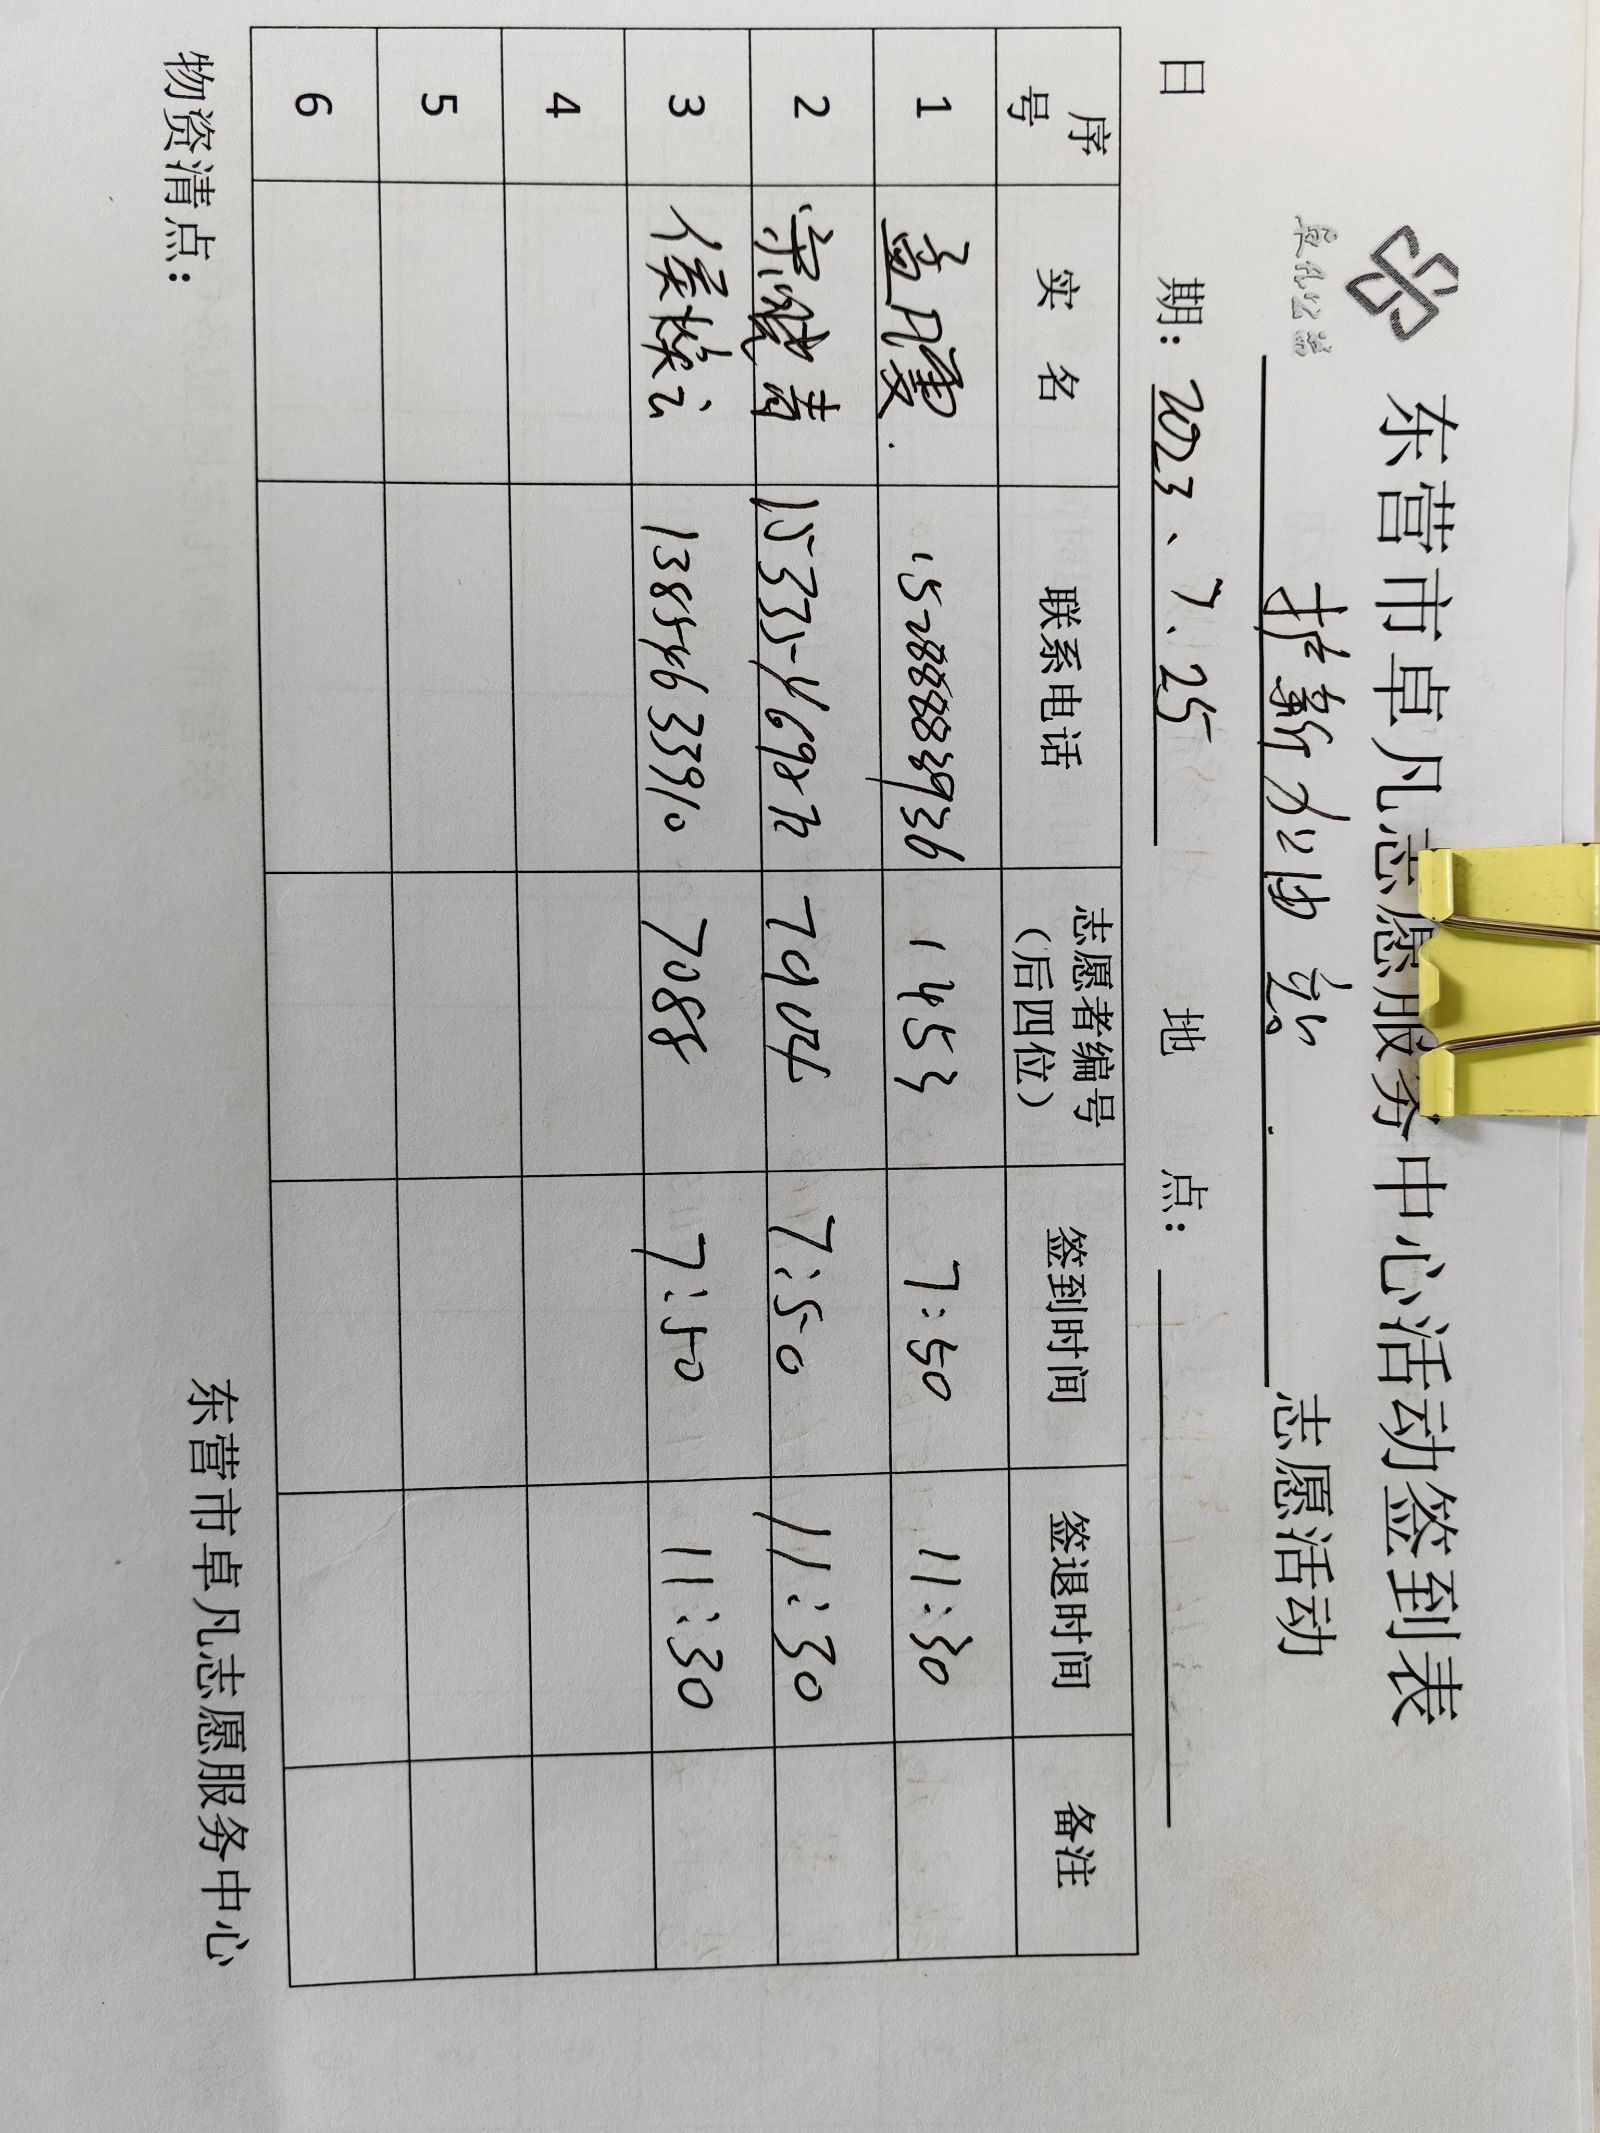 东营市卓凡志愿服务中心活动签到表
卓凡公益
护新加油站 志愿活动
日 期：2023、7.25 地 点：
序号 实 名 联系电话 志愿者编号（后四位） 签到时间 签退时间 备注
1 孟月霞 15288883936 1453 7:50 11:30
2 宋 青 15335469872 7904 7:50 11:30
3 侯 云 13854633910 7088 7:50 11:30
4
5
6
物资清点：
东营市卓凡志愿服务中心